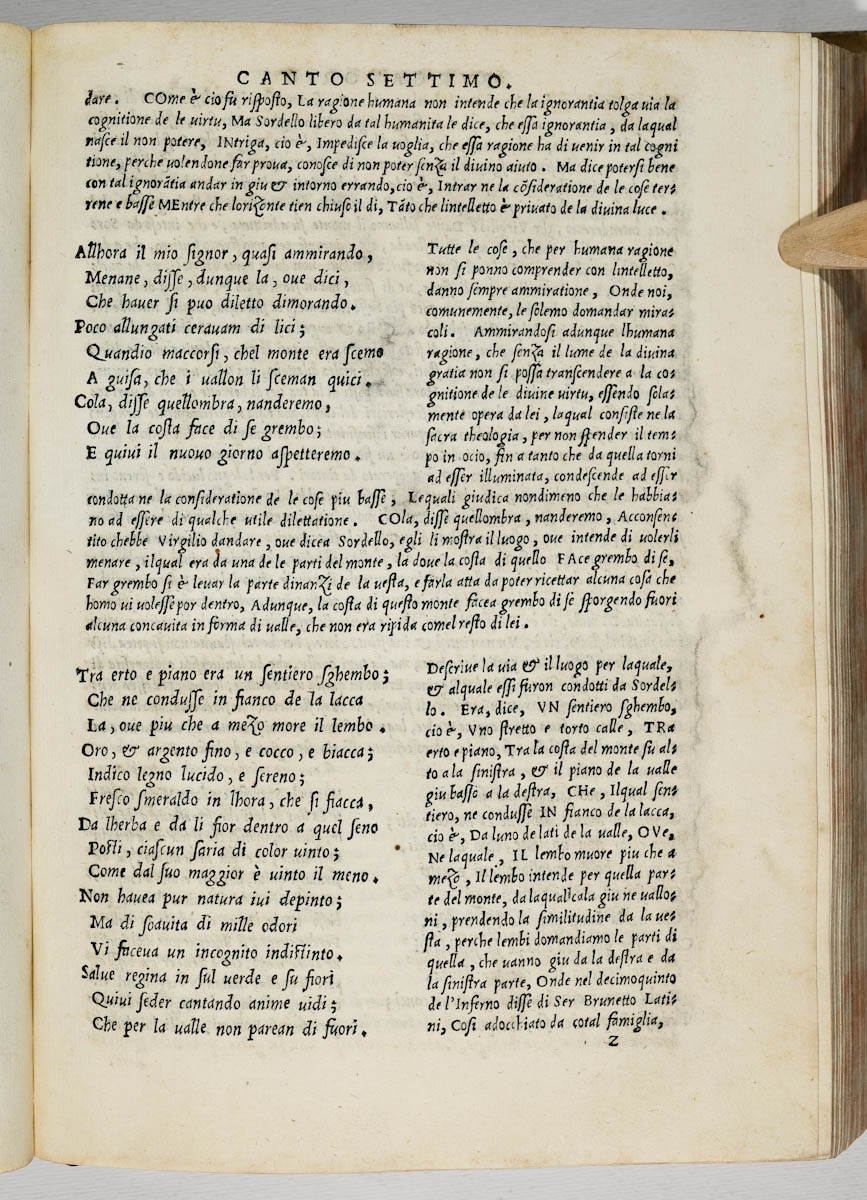 CANTO SETTIMO.
dare. COme è cio fu risposto, La ragione humana non intende che la ignorantia tolga uia la
cognitione de le uirtu, Ma Sordello libero da tal humanita le dice, che essa ignorantia, da laqual
nasce il non potere, INtriga, cio è, Impedisce la uoglia, che essa ragione ha di uenir in tal cogni
tione, perche uolendone far proua, conosce di non poter senza il diuino aiuto. Ma dice potersi bene
con tal ignorãtia andar in giu & intorno errando, cio è, Intrar ne la cõsideratione de le cose ter-
rene e basse MEntre che lorizonte tien chiuso il di, Tãto che lintelletto è priuato de la diuina luce.
Allhora il mio signor, quasi ammirando,
Menane, disse, dunque la, oue dici,
Che hauer si puo diletto dimorando.
Poco allungati cerauam di lici;
Quandio maccorsi, chel monte era scemo
A guisa, che i uallon li sceman quici.
Cola, disse quellombra, nanderemo,
Oue la costa face di se grembo;
E quiui il nuouo giorno aspetteremo.
Tutte le cose, che per humana ragione
non si ponno comprender con lintelletto,
danno sempre ammiratione, Onde noi,
comunemente, le solemo domandar mira-
coli. Ammirandosi adunque lhumana
ragione, che senza il lume de la diuina
gratia non si possa transcendere a la co-
gnitione de le diuine uirtu, essendo sola-
mente opera da lei, laqual consiste ne la
sacra theologia, per non spender il tem-
po in ocio, fin a tanto che da quella torni
ad esser illuminata, condescende ad esser
condotta ne la consideratione de le cose piu basse, Lequali giudica nondimeno che le habbia-
no ad essere di qualche utile dilettatione. COla, disse quellombra, nanderemo, Acconsen-
tito chebbe Virgilio dandare, oue dicea Sordello, egli li mostra il luogo, oue intende di uolerli
menare, ilqual era da una de le parti del monte, la doue la costa di quello FAce grembo di se,
Far grembo si è leuar la parte dinanzi de la uesta, e farla atta da poter ricettar alcuna cosa che
homo ui uolesse por dentro, Adunque, la costa di questo monte facea grembo di se sporgendo fuori
alcuna concauita in forma di ualle, che non era ripida comel resto di lei.
Tra erto e piano era un sentiero sghembo;
Che ne condusse in fianco de la lacca
La, oue piu che a mezo more il lembo.
Oro, & argento fino, e cocco, e biacca;
Indico legno lucido, e sereno;
Fresco smeraldo in lhora, che si fiacca,
Da lherba e da li fior dentro a quel seno
Posti, ciascun saria di color uinto;
Come dal suo maggior è uinto il meno.
Non hauea pur natura iui depinto;
Ma di soauita di mille odori
Vi faceua un incognito indistinto.
Salue regina in sul uerde e su fiori
Quiui seder cantando anime uidi;
Che per la ualle non parean di fuori.
Descriue la uia & il luogo per laquale,
& alquale essi furon condotti da Sordel-
lo. Era, dice, VN sentiero sghembo,
cio è, Vno stretto e torto calle, TRa
erto e piano, Tra la costa del monte su al-
to a la sinistra, & il piano de la ualle
giu basso a la destra, CHe, Ilqual sen-
tiero, ne condusse IN fianco de la lacca,
cio è, Da luno de lati de la ualle, OVe,
Ne laquale, IL lembo muore piu che a
mezo, Il lembo intende per quella par-
te del monte, da laqual cala giu ne uallo-
ni, prendendo la similitudine da la ue-
sta, perche lembi domandiamo le parti di
quella, che uanno giu da la destra e da
la sinistra parte, Onde nel decimoquinto
de l'Inferno disse di Ser Brunetto Lati-
ni, Cosi adocchiato da cotal famiglia,
Z